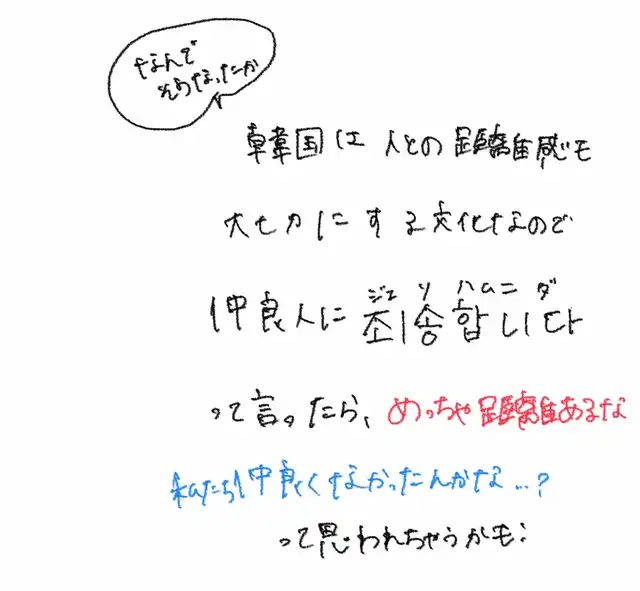 なんで
そうなったか
韓国は人との距離感も
大切にする文化なので
仲良人に죄송합니다
ジェソハムニダ
って言ったら、めっちゃ距離あるな
私たち仲良くなかったんかな…?
って思われちゃうかも: